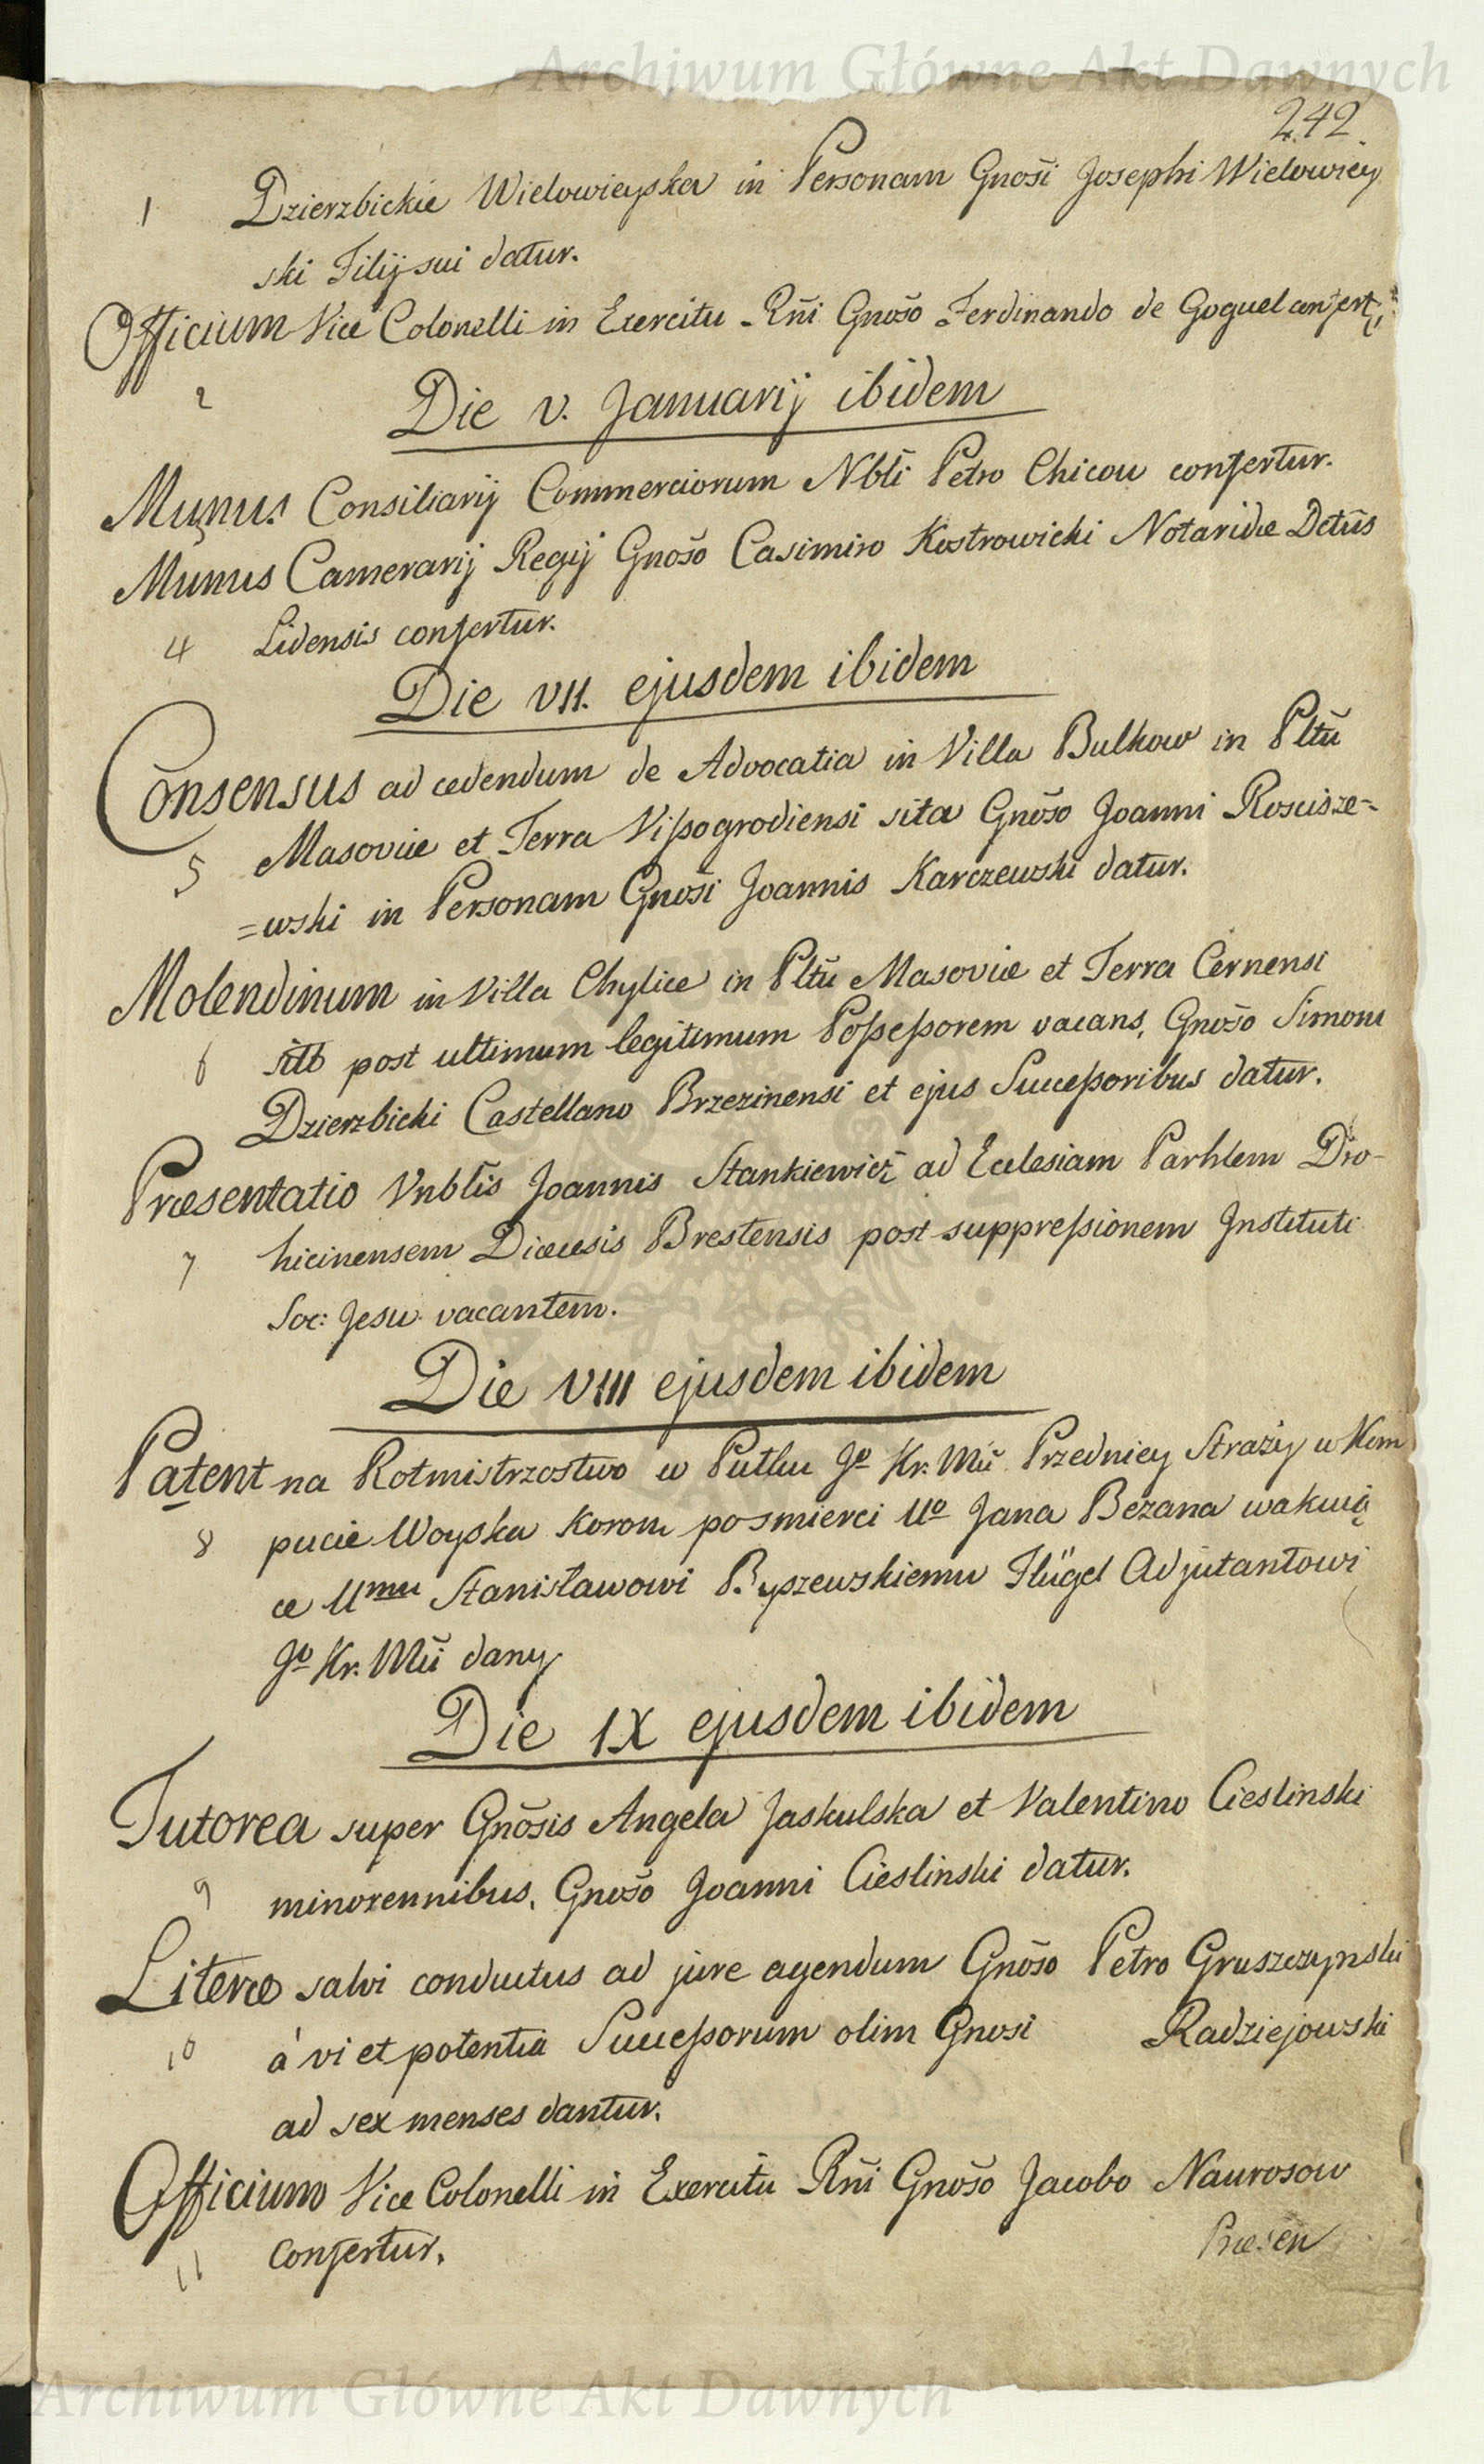 Archiwum Główne Akt Dawnych
242
1 Dzierzbickie Wielowieyska in Personam Gnosi Josephi Wielowiey
ski Filij sui datur.
Officium Vice Colonelli in Exercitu Rñi Gnoso Ferdinando de Goguel confert:
2 Die V. Januarij ibidem
Munus Consiliarij Commerciorum Nbli Petro Chicou confertur.
Munus Camerarij Regij Gnoso Casimiro Kostrowicki Notaridæ Dctũs
4 Lidensis confertur.
Die VII. ejusdem ibidem
Consensus ad cedendum de Advocatia in Villa Bulkow in Pltũ
5 Masoviæ et Terra Vißogrodiensi sita Gnõso Joanni Roscisze=
=wski in Personam Gnõsi Joannis Karczewski datur.
Molendinum in Villa Chylice in Pltũ Masoviæ et Terra Cernensi
6 sito post ultimum legitimum Poßeßorem vacans, Gnoso Simoni
Dzierzbicki Castellano Brzezinensi et ejus Succeßoribus datur.
Præsentatio Vnblis Joannis Stankiewicz ad Ecclesiam Parhlem Dro-
7 hicinensem Diæcesis Brestensis post suppreßionem Instituti
Soc: Jesu vacantem.
Die VIII ejusdem ibidem
Patent na Rotmistrzostwo w Putku Jº Kr. Mći Przedniey Straży w Kom
8 pucie Woyska Koron posmierci Uº Jana Bezana wakuią
ce Umu Stanisławowi Byszewskiemu Flügel Adjutantowi
Jº Kr. Mći dany
Die IX ejusdem ibidem
Tutorea super Gnõsis Angela Jaskulska et Valentino Cieslinski
9 minorennibus, Gnoso Joanni Cieslinski datur.
Literæ salvi conductus ad jure agendum Gnõso Petro Gruszczynski
10 á vi et potentia Succeßorum olim Gnosi Radziejowski
ad sex menses dantur.
Officium Vice Colonelli in Exercitu Rñi Gnõso Jacobo Naurosow
11 confertur.
Præsen
Archiwum Główne Akt Dawnych